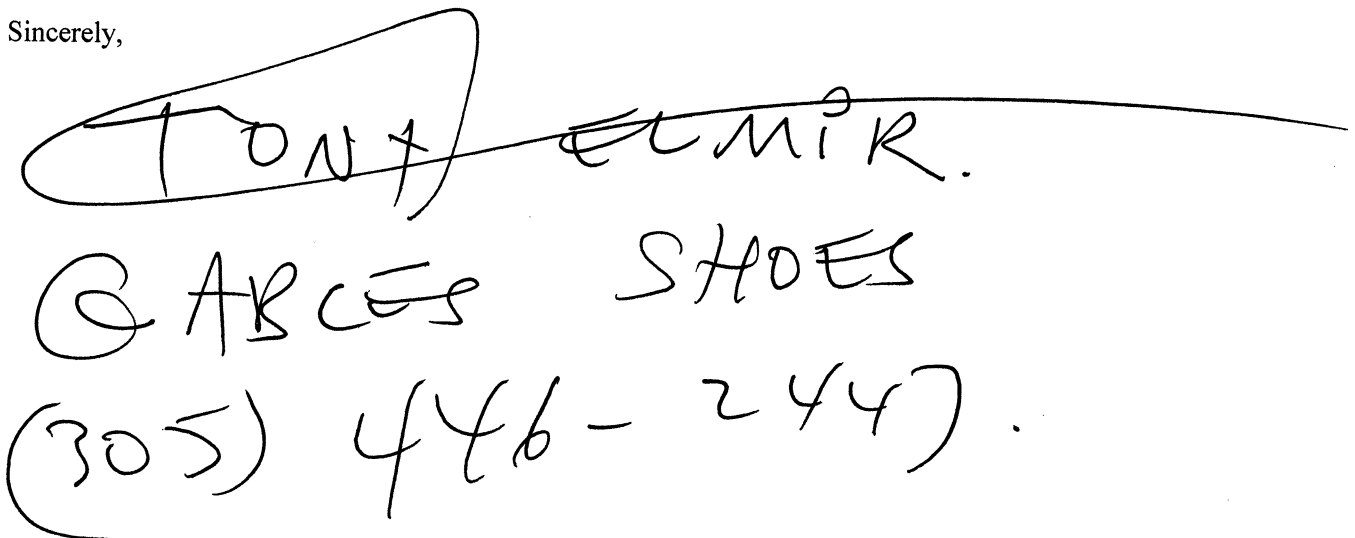 Sincerely,
TONY ELMIR.
GABLES SHOES
(305) 446-2447.